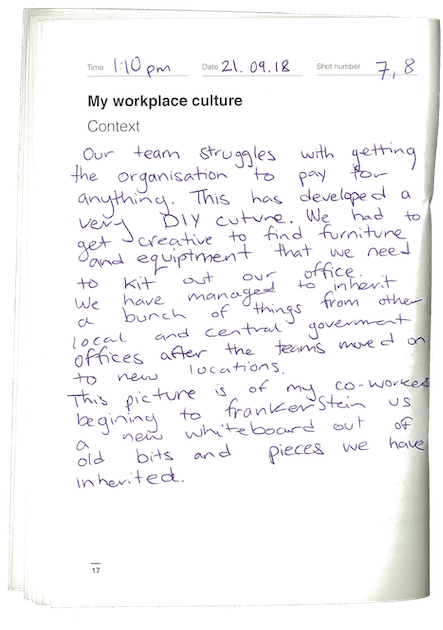 Time 1:10 pm Date 21.09.18 Shot number 7,8
My workplace culture
Context
Our team struggles with getting
the organisation to pay for
anything. This has developed a
very DIY cuture. We had to
get creative to find furniture
and equiptment that we need
to kit out our office.
We have managed to inherit
a bunch of things from other
local and central goverment
offices after the teams moved on
to new locations.
This picture is of my co-workers
begining to frankenstein us
a new whiteboard out of
old bits and pieces we have
inherited.
17